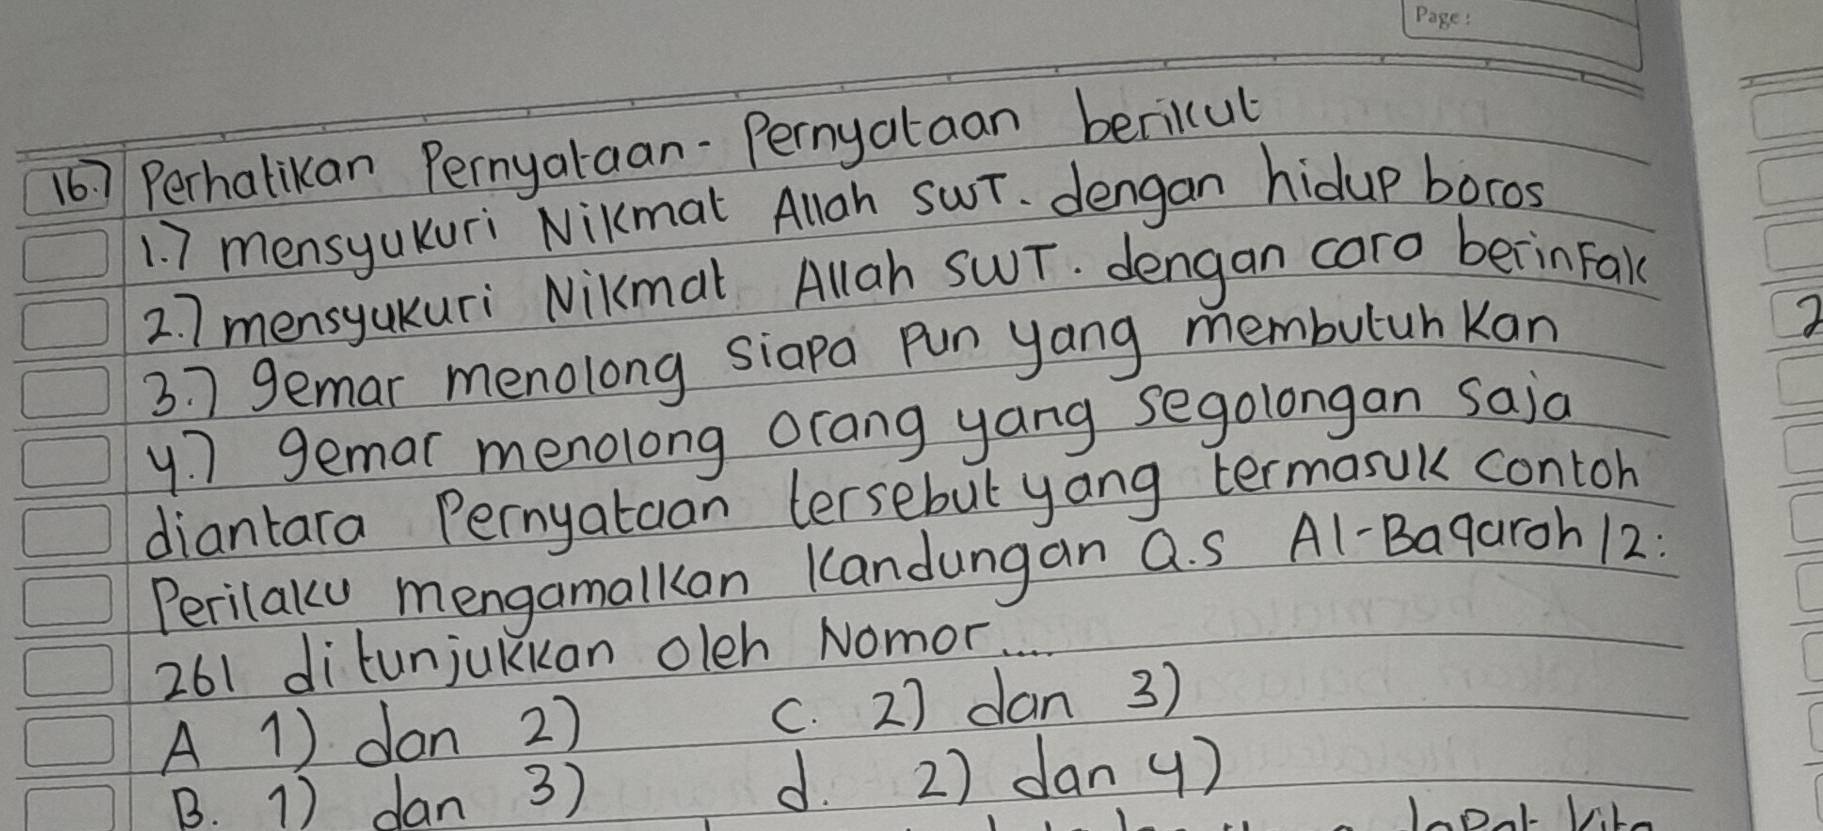 Page:
16.) Perhatikan Pernyataan-Pernyataan berikut
1.) mensyukuri Nikmat Allah SWT. dengan hidup boros
2.) mensyukuri Nikmat Allah SWT. dengan cara berinfak
3.) gemar menolong siapa pun yang membutuhkan
4.) gemar menolong orang yang segolongan saja
diantara Pernyataan tersebut yang termasuk contoh
Perilaku mengamalkan kandungan Q.S Al-Baqarah 12:
261 ditunjukkan oleh Nomor....
A 1) dan 2) C. 2) dan 3)
B. 1) dan 3) d. 2) dan 4)
dapat kita
2